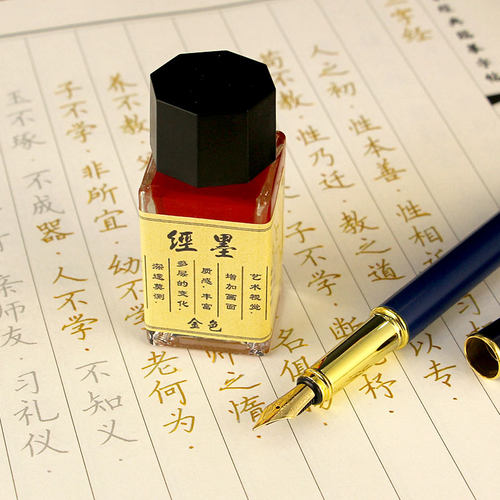 三字经
人之初·性本善·性相
苟不教·性乃迁·教之道·
以专·
子不学·断
杼·
名俱
养不教
师之惰·
子不学·非所宜·幼不学·老何为·
玉不琢·不成器·人不学·不知义·
亲师友·习礼仪·
經墨
艺术视觉
增加画面
质感·丰富
多层的变化·
深邃莫测
金色